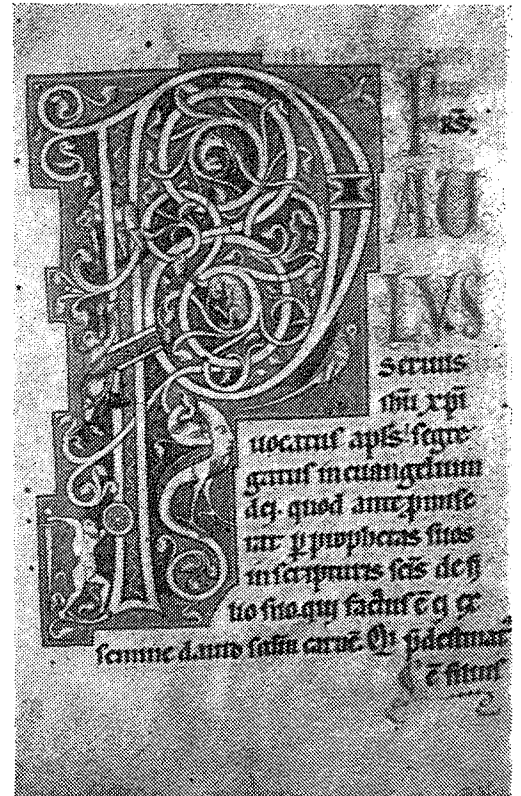 P
AU
LVS
seruus
ihu xpi
uocatus apls. segre
gatus in euangelium
dei. quod ante promise
rat per prophetas suos
in scripturis scis de fi
lio suo. qui factus ē ei ex
semine dauid scdm carnē. Qi predestinat
ē filius